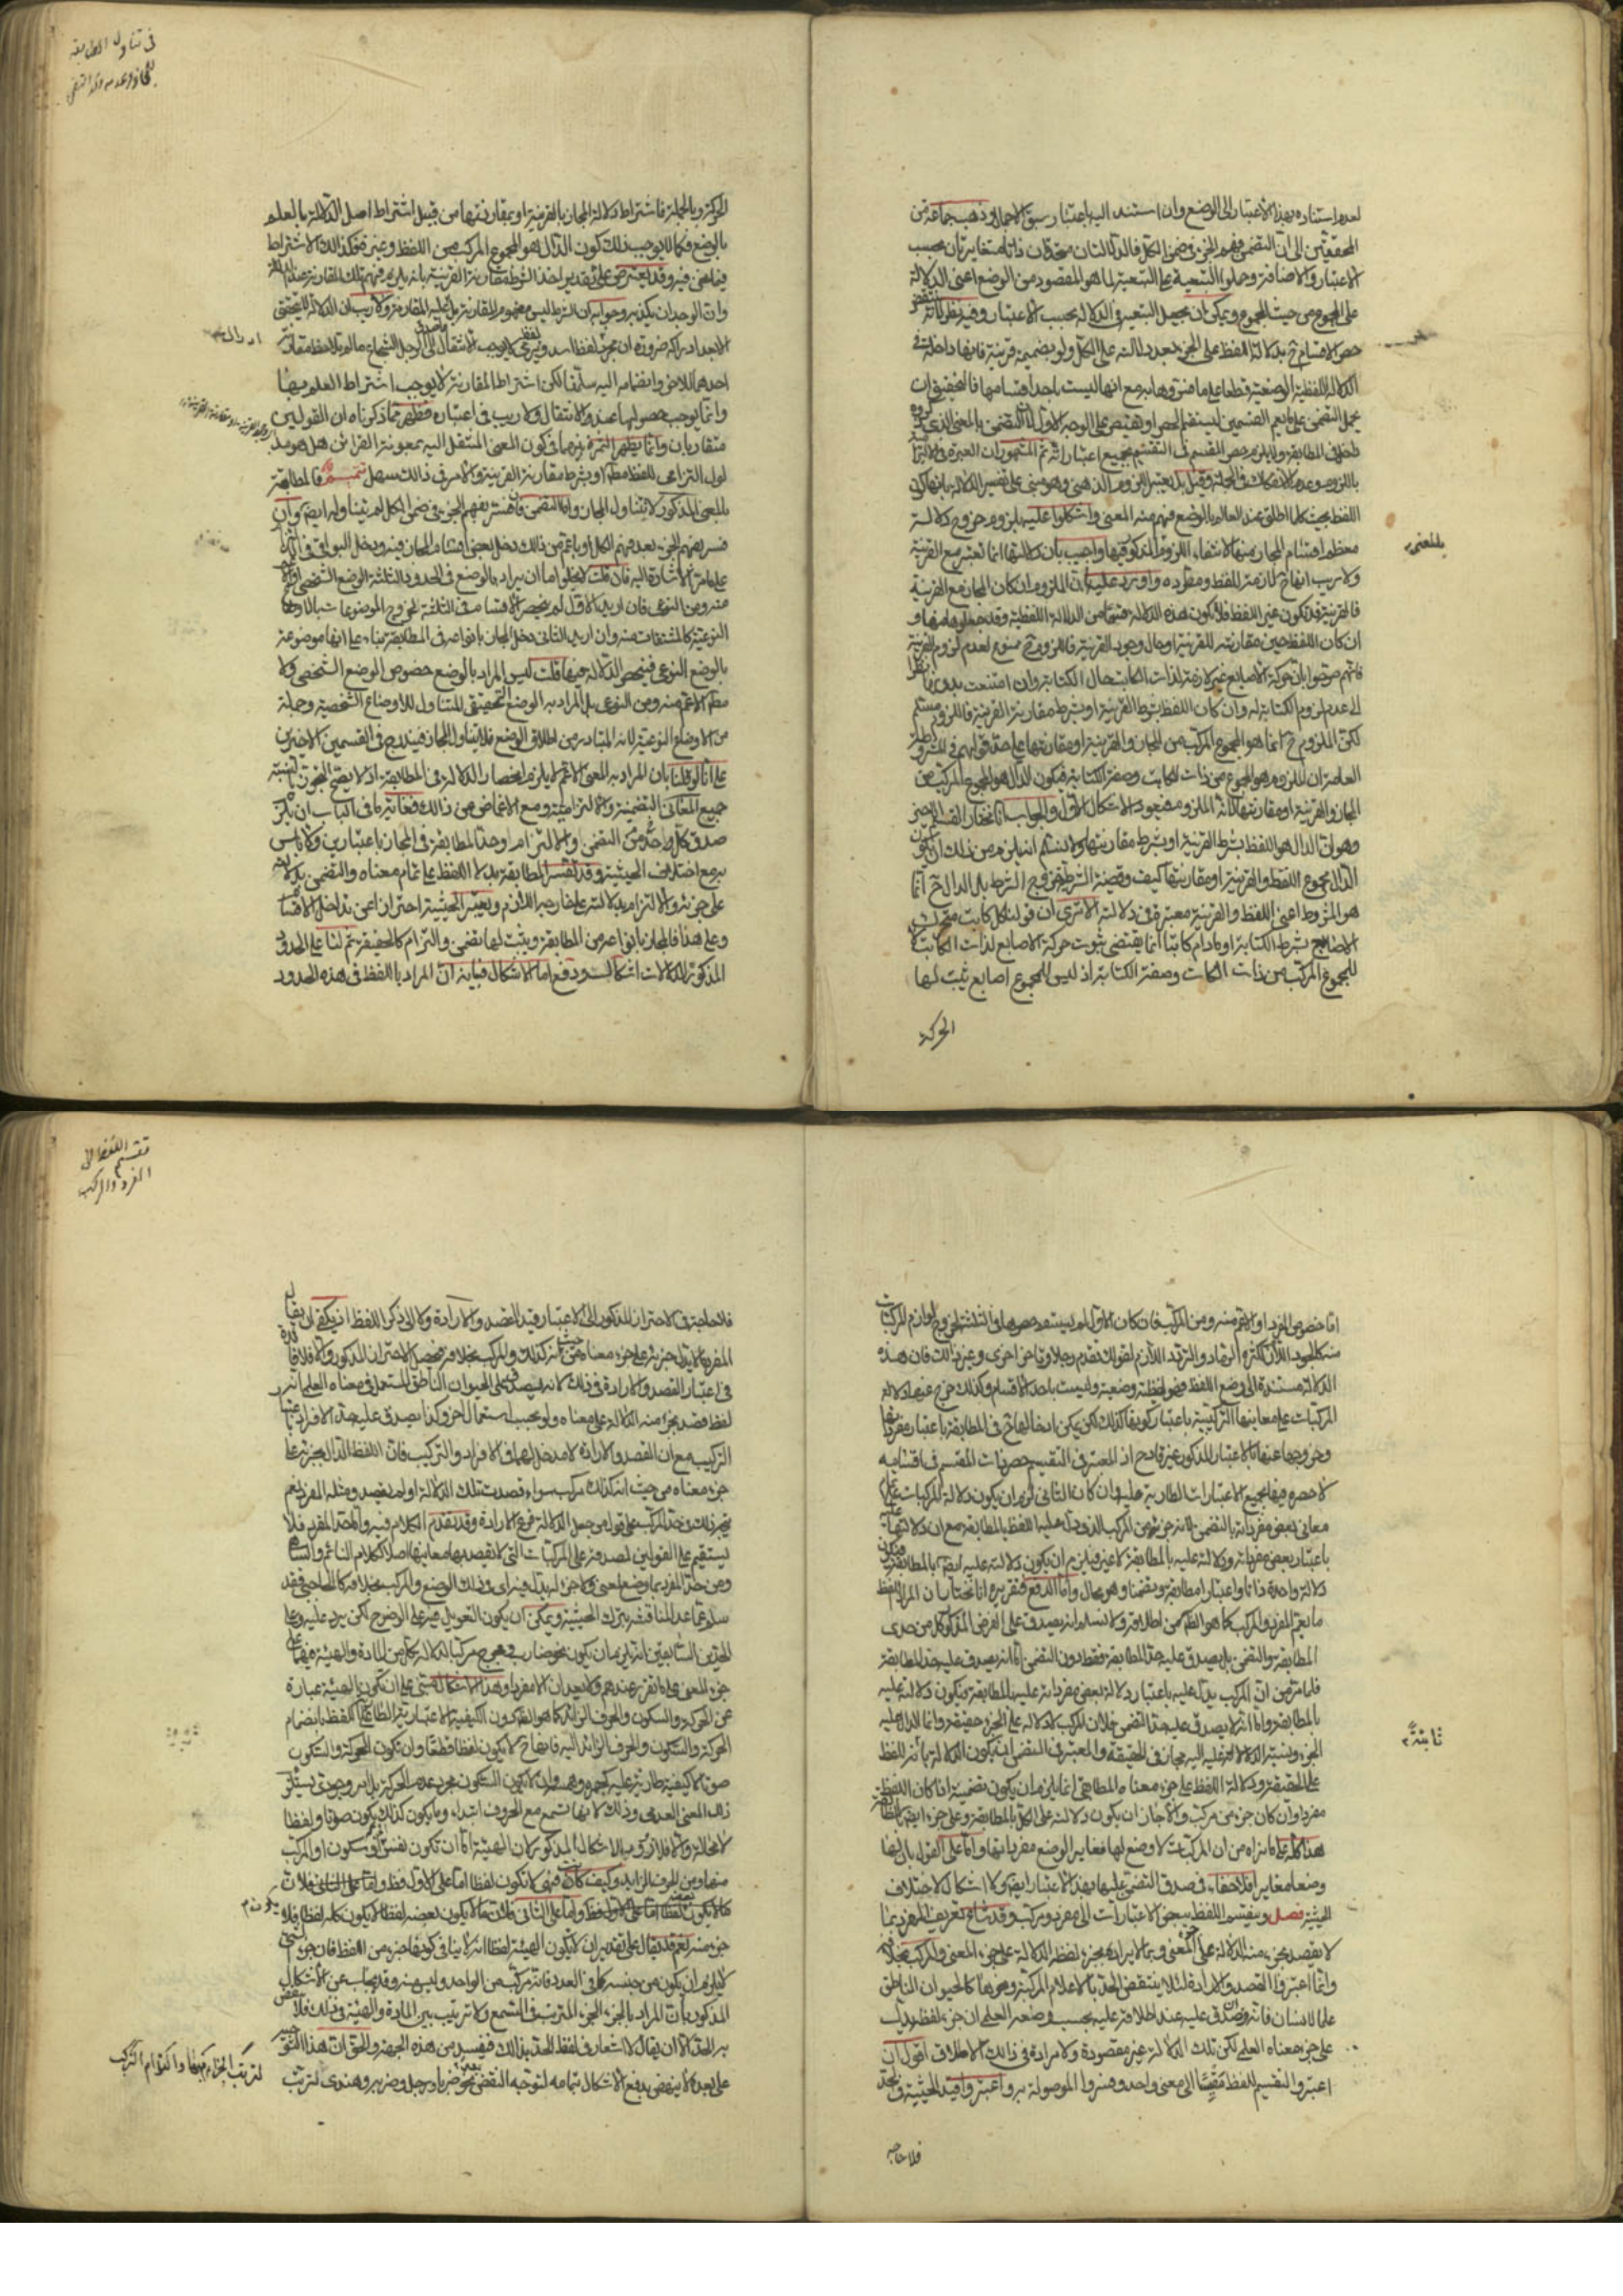 لعدم استناده بهذا الاعتبار الى الوضع وان استند اليه باعتبار سبق الاجمال وذهب جماعة من
المحققين الى ان التضمن فهم الجزء في ضمن الكل فالدلالتان متحدتان ذاتا متغايرتان بحسب
الاعتبار والاضافة وحملوا التبعية على التبعية لما هو المقصود من الوضع اعنى الدلالة
على المجموع من حيث المجموع ويمكن ان يجعل التبعية في الدلالة بحسب الاعتبار وفيه نظر لانه
حصر الاقسام ح بدلالة اللفظ على الجزء بعد دلالته على الكل ولو بضميمة قرينة فانها داخلة في
الدلالة اللفظية الوضعية قطعا على ما مر مع انها ليست باحد اقسامها فالتحقيق ان
يحمل التضمن على ما يعم القسمين ليستقيم الحصر
باللزوم عدم الانفكاك في الجملة وقيل بل يعتبر اللزوم الذهني وهو مبنى على تفسير الدلالة بانها كون
اللفظ بحيث كلما اطلق عند العالم بالوضع فهم منه المعنى واشكلوا عليه بلزوم خروج دلالة
معظم اقسام المجاز منها لانتفاء اللزوم المذكور فيها واجيب بان دلالتها انما تعتبر مع القرينة
ولا ريب انها ح لازمة للفظ ومطرده واورد عليه ان الملزوم ان كان المجاز مع القرينة
فالقرينة قد تكون غير اللفظ فلا تكون هذه الدلالة قسما من الدلالة اللفظية وقد جعلوها منها و
ان كان اللفظ حين مقارنته للقرينة او حال وجود القرينة فاللزوم ح ممنوع لعدم لزوم القرينة
فانهم صرحوا بان حركة الاصابع غير لازمة لذات الكاتب حال الكتابة وان امتنعت بدونها نظرا
الى عدم لزوم الكتابة له وان كان اللفظ بشرط القرينة او بشرط مقارنة القرينة فاللزوم مسلم
لكن الملزوم ح انما هو المجموع المركب من المجاز والقرينة او مقارنتها على حد قولهم في المشروطة
العامة ان الملزوم هو المجموع من ذات الكاتب وصفة الكتابة فيكون الدال هو المجموع المركب من
المجاز والقرينة او مقارنتها لانه الملزوم فيعود الاشكال الاول والجواب انا نختار القسم الاخير
وهو ان الدال هو اللفظ بشرط القرينة او بشرط مقارنتها ولا نسلم انه يلزم من ذلك ان يكون
الدال مجموع اللفظ والقرينة او مقارنتها كيف وقضية الشرطية خروج الشرط بل الدال ح انما
هو المشروط اعنى اللفظ والقرينة معتبرة في دلالته الا ترى ان قولنا كل كاتب متحرك
الاصابع بشرط الكتابة او ما دام كاتبا انما يقتضى ثبوت حركة الاصابع لذات الكاتب لا
للمجموع المركب من ذات الكاتب وصفة الكتابة اذ ليس للمجموع اصابع يثبت لها
الحركة
بالمعنى
في تناول المطابقة
للمجاز وعدمه
الحركة وبالجملة فاشتراط دلالة المجاز بالقرينة او بمقارنتها من قبيل اشتراط اصل الدلالة بالعلم
بالوضع فكما لا يوجب ذلك كون الدال هو المجموع المركب من اللفظ وغيره فكذلك الاشتراط
فيما نحن فيه وقد يعترض على تقدير اخذ الشرط مقارنة القرينة بانه يلزم فهم تلك المقارنة عند الدلالة
وان الوجدان يكذبه وجوابه ان الشرط ليس مفهوم المقارنة بل نفس المقارنة ولا ريب ان الدلالة لا تتحقق
الا بعد ادراكه ضرورة ان مجرد لفظ اسد ويرمى لا يوجب الانتقال الى الرجل الشجاع ما لم يلاحظ مقارنة
احدهما للاخر وانضمامه اليه سلمنا لكن اشتراط المقارنة لا يوجب اشتراط العلم بها
وانما يوجب حصولها عند الانتقال ولا ريب في اعتباره فظهر مما ذكرناه ان القولين
متقاربان وانما يظهر الثمرة بينهما في كون المعنى المنتقل اليه بمعونة القرائن هل هو مد
لول التزامى للفظ مطلقا او بشرط مقارنة القرينة والامر في ذلك سهل تتميم فالمطابقة
بالمعنى المذكور لا يتناول المجاز واما التضمن فان فسر بفهم الجزء في ضمن الكل لم يتناوله ايضا وان
فسر بفهم الجزء بعد فهم الكل او باعم من ذلك دخل بعض اقسام المجاز فيه ودخل البواقى في الالتزام
على ما مر الاشارة اليه فان قلت لا يخلو اما ان يراد بالوضع في الحدود الثلثة الوضع الشخصى او الاعم
منه ومن النوعى فان اريد الاول لم ينحصر الاقسام في الثلثة لخروج الموضوعات بالاوضاع
النوعية كالمشتقات منه وان اريد الثانى دخل المجاز بانواعه في المطابقة بناء على انها موضوعة
بالوضع النوعى فينحصر الدلالة فيها قلت ليس المراد بالوضع خصوص الوضع الشخصى ولا
مطلق الاعم منه ومن النوعى بل المراد به الوضع التحقيقى المتناول للاوضاع الشخصية وجملة
من الاوضاع النوعية لانه المتبادر من اطلاق الوضع فلا يتناول المجاز فيندرج في القسمين الاخيرين
على انا لو قلنا بان المراد به المعنى الاعم لا يلزم انحصار الدلالة في المطابقة اذ لا يصح التجوز بالنسبة
جميع المعانى التضمنية والالتزامية ومع الاغماض عن ذلك فغاية ما في الباب ان يلزم
صدق كل واحد من التضمن والالتزام وحد المطابقة في المجاز باعتبارين ولا باس
به مع اختلاف الحيثية وقد تفسر المطابقة بدلالة اللفظ على تمام معناه والتضمن بدلالته
على جزئه والالتزام بدلالته على خارجه اللازم ويعتبر الحيثية احترازا عن تداخل الاقسام
وعلى هذا فالمجاز بانواعه من المطابقة ويثبت لها تضمن والتزام كالحقيقة ثم لنا على الحدود
المذكورة للدلالات اشكال ودفع اما الاشكال فبيانه ان المراد باللفظ في هذه الحدود
اما خصوص المفرد او الاعم منه ومن المركب فان كان الاول لم يستقم حصرها في الثلثة لخروج لوازم المركبات
منه كالجود اللازم لكثرة الرماد والتردد اللازم لقولك تقدم رجلا وتاخر اخرى وغير ذلك فان هذه
الدلالة مستندة الى وضع اللفظ فهى لفظية وضعية وليست باحد الاقسام وكذلك خرج عنها دلالة
المركبات على معانيها التركيبية
وخروجها عنها بالاعتبار المذكور غير قادح اذ المعتبر في التقسيم حصر ذات المقسم في اقسامه
لا حصره فيها بجميع الاعتبارات الطارية عليه وان كان الثانى لزم ان يكون دلالة المركبات على
معانى بعض مفرداته بالتضمن لانه جزء من المركب الذى دل عليه اللفظ بالمطابقة مع ان دلالتها عليه
باعتبار بعض مفرداته ودلالته عليه بالمطابقة لا غير فيلزم ان يكون دلالته عليه ايضا بالمطابقة فيكون
دلالة واحدة ذاتا واعتبارا مطابقة وتضمنا وهو محال واما الدفع فتقريره انا نختار ان المراد باللفظ
ما يعم المفرد والمركب كما هو الظاهر من اطلاقه ولا نسلم انه يصدق على الفرض المذكور كل من حدى
المطابقة والتضمن بل يصدق عليه حد المطابقة فقط دون التضمن اما انه يصدق عليه حد المطابقة
فلما مر من ان المركب يدل عليه باعتبار دلالة بعض مفرداته عليه بالمطابقة فيكون دلالته عليه
بالمطابقة واما انه لا يصدق عليه حد التضمن فلان المركب لا دلالة له على الجزء حقيقة وانما الدال عليه
الجزء ونسبة الدلالة عليه اليه مجاز في الحقيقة والمعتبر في التضمن ان يكون الدلالة ثابتة للفظ
على الحقيقة ودلالة اللفظ على جزء معناه المطابقى انما يلزم ان يكون تضمنية اذا كان اللفظ
مفردا وان كان جزء من مركب والا جاز ان يكون دلالته على الكل بالمطابقة وعلى جزئه ايضا بالمطابقة
هذا كله على ما نراه من ان المركبات لا وضع لها مغاير الوضع مفرداتها واما على القول بان لها
وضعا مغايرا فلا خفاء في صدق التضمن عليها بهذا الاعتبار ايضا ولا اشكال لاختلاف
الحيثية فصل وينقسم اللفظ ببعض الاعتبارات الى مفرد ومركب وقد شاع تعريف المفرد بما
لا يقصد بجزء منه الدلالة على جزء المعنى وبما لا يراد بجزء لفظه الدلالة على جزء المعنى والمركب بخلافه
وانما اعتبروا القصد والارادة لئلا ينتقض الحد بالاعلام المركبة ونحوها كالحيوان الناطق
علما لانسان فانه يصدق عليه عند اطلاقه عليه بحسب وضعه العلمى ان جزء لفظه يدل
على جزء معناه العلمى لكن تلك الدلالة غير مقصودة ولا مرادة في ذلك الاطلاق اقول ان
اعتبروا التقسيم للفظ مقيسا الى معنى واحد وفسروا الموصولة به واعتبروا قيد الحيثية في الحد
فلا حاجة
ثابتة
تقسيم اللفظ الى
المفرد والمركب
فلا حاجة في الاحتراز المذكور الى الاعتبار قيد القصد والارادة ولا الى ذكر اللفظ اذ يكفى ان يقال
المفرد ما لا يدل جزئه على جزء معناه من حيث انه كذلك والمركب بخلافه فيحصل الاحتراز المذكور والا فلا فائدة
في اعتبار القصد والارادة في ذلك لانه يصدق على الحيوان الناطق المستعمل في معناه العلمى انه
لفظ قصد بجزء منه الدلالة على جزء معناه ولو بحسب استعمال اخر وكذا يصدق عليه حد الافراد باعتبار
التركيب مع ان القصد والارادة لا مدخل لهما في الافراد والتركيب فان اللفظ الدال بجزئه على
جزء معناه من حيث انه كذلك مركب سواء قصدت تلك الدلالة او لم يقصد ومثله المفرد نعم
يتجه ذلك في حد المركب على قول من جعل الدلالة فرع الارادة وقد تقدم الكلام فيه واما حد المفرد فلا
يستقيم على القولين لصدقه على المركبات التى لا يقصد بها معانيها اصلا ككلام النائم والساهى
ومن حد المفرد بما وضع لمعنى ولا جزء له يدل فيه اى في ذلك الوضع والمركب بخلافه كالحاجبى فقد
سلم عما عدا المناقشة بترك الحيثية ويمكن ان يكون التعويل فيه على الوضوح لكن يرد عليه وعلى
الحدين السابقين انه يلزم ان يكون نحو ضارب ومخرج مركبا لدلالة كل من المادة والهيئة فيهما على
جزء المعنى على ما تقرر عندهم ولا يعدان الا مفردا وهذا الاشكال مبنى على ان تكون الهيئة عبارة
عن الحركة والسكون والحرف الزائد كما هو الظاهر دون الكيفية الاعتبارية الطارية للفظ بانضمام
الحركة والسكون والحرف الزائد اليه فانها ح لا يكون لفظا قطعا وان تكون الحركة والسكون
صوتا لا كيفية طارية عليه كالجهر والهمس وان لا يكون السكون مجرد عدم الحركة بل امر وجودى يستلزم
ذلك المعنى العدمى وذلك لانها تسمع مع الحروف ابتداء وما يكون كذلك يكون صوتا ولفظا
لا محالة والا فلا ورود للاشكال المذكور لان الهيئة اما ان تكون نفس الحركة والسكون او المركب
منهما ومن الحرف الزايد وكيف كان فهى لا تكون لفظا اما على الاول فظ واما على الثانى فلان
ما لا يكون بعضه لفظا لا يكون كله لفظا فلا
جزء منه نعم قد يقال على تقدير ان لا يكون الهيئة لفظا انه لا ينافى كونها جزء من اللفظ فان جزء الشئ
لا يلزم ان يكون من جنسه كما في العدد فانه مركب من الواحد وليس منه وقد يجاب عن الاشكال
المذكور بان المراد بالجزء الجزء المترتب في السمع ولا ترتيب بين المادة والهيئة في ذلك فلا ينتقض
به الحد الا ان يقال لا اشعار في لفظ الحد بذلك فيفسد من هذه الجهة والحق ان هذا التوجيه
على بعده لا ينهض بدفع الاشكال بتمامه لتوجه النقض بنحو ضربا ورجل وضربه وهندى لترتب